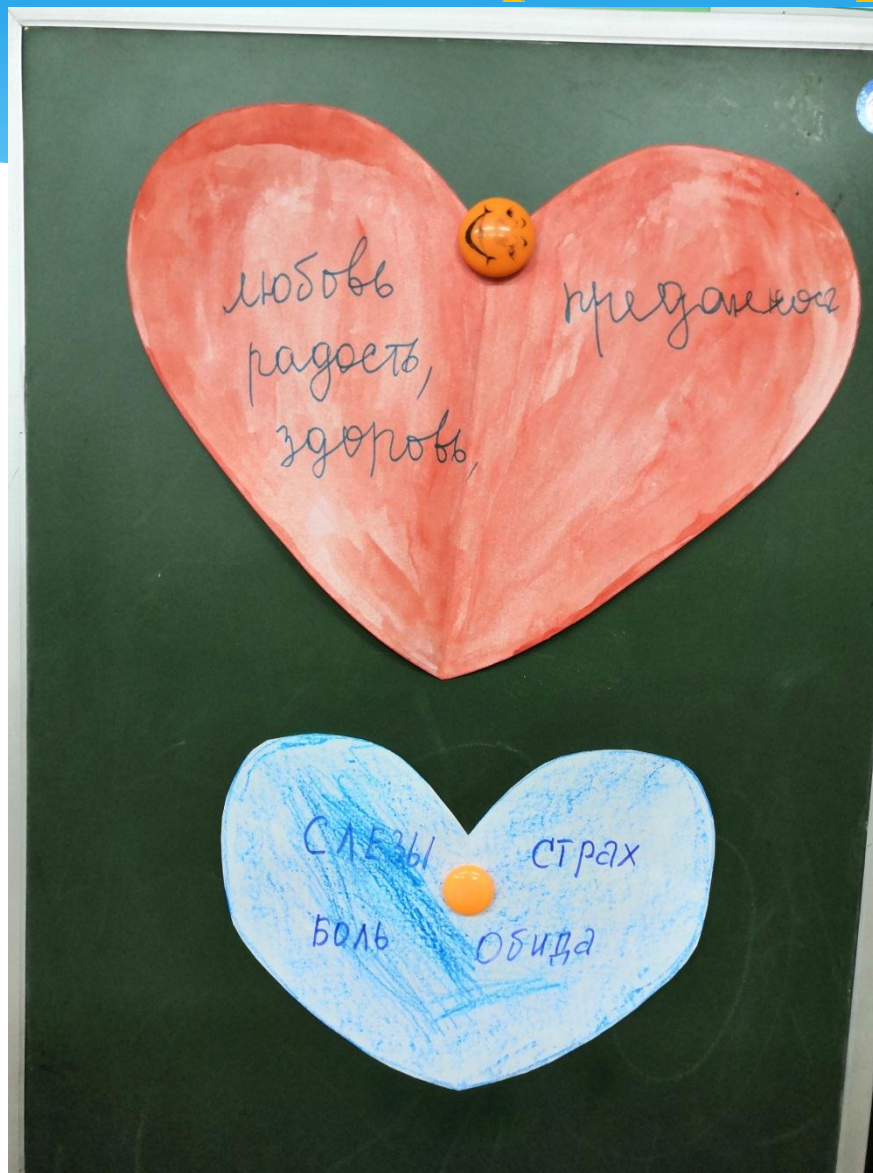 любовь
радость,
здоровь,
преданност
СЛЕЗЫ
страх
Боль
Обида